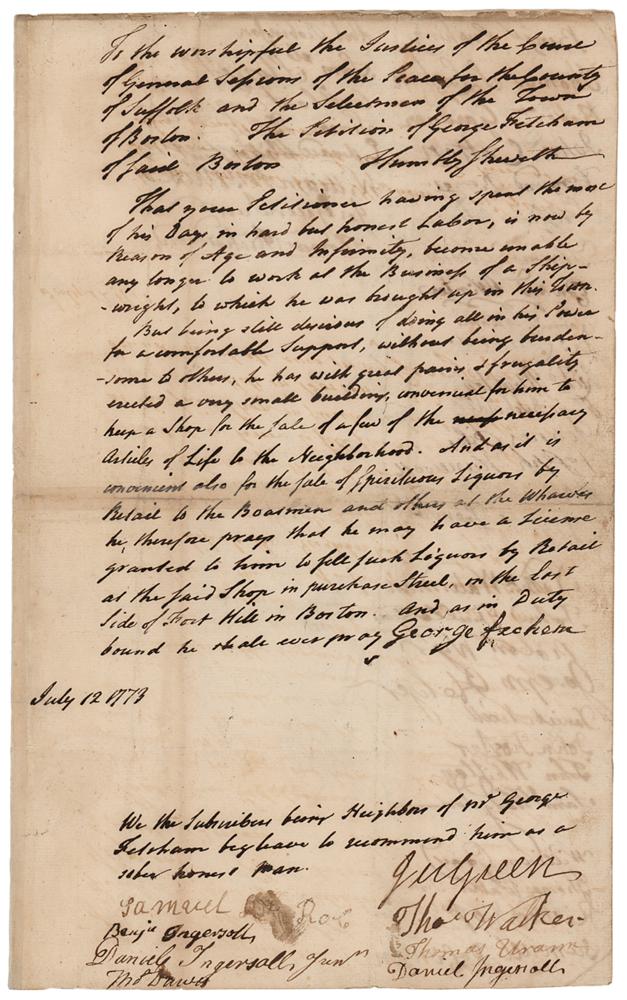 To the worshipful the Justices of the Court
of General Sessions of the Peace for the County
of Suffolk and the Selectmen of the Town
of Boston. The Petition of George Fetcham
of said Boston Humbly Sheweth
That your Petitioner having spent the most
of his Days in hard but honest Labor, is now by
Reason of Age and Infirmity, become unable
any longer to work at the Business of a Ship-
-wright, to which he was brought up in this Town.
But being still desirous of doing all in his Power
for a comfortable Support, without being burden-
-some to others, he has with great pains & frugality
erected a very small building, convenient for him to
keep a Shop for the sale of a few of the necessary
Articles of Life to the Neighborhood. And as it is
convenient also for the sale of spirituous Liquors by
Retail to the Boatmen and others at the Wharves
he, therefore prays that he may have a License
granted to him to sell such Liquors by Retail
at the said Shop in purchase Street, on the East
Side of Fort Hill in Boston. And as in Duty
bound he shall ever pray George
July 12 1773
We the Subscribers being Neighbors of Mr George
Fetcham beg leave to recommend him as a
sober honest Man.
Jos Green
Samuel
Thos Walker
Benja Ingersoll
Thomas Uran
Daniel Ingersoll Junr
Daniel Ingersoll
Thos Dawes